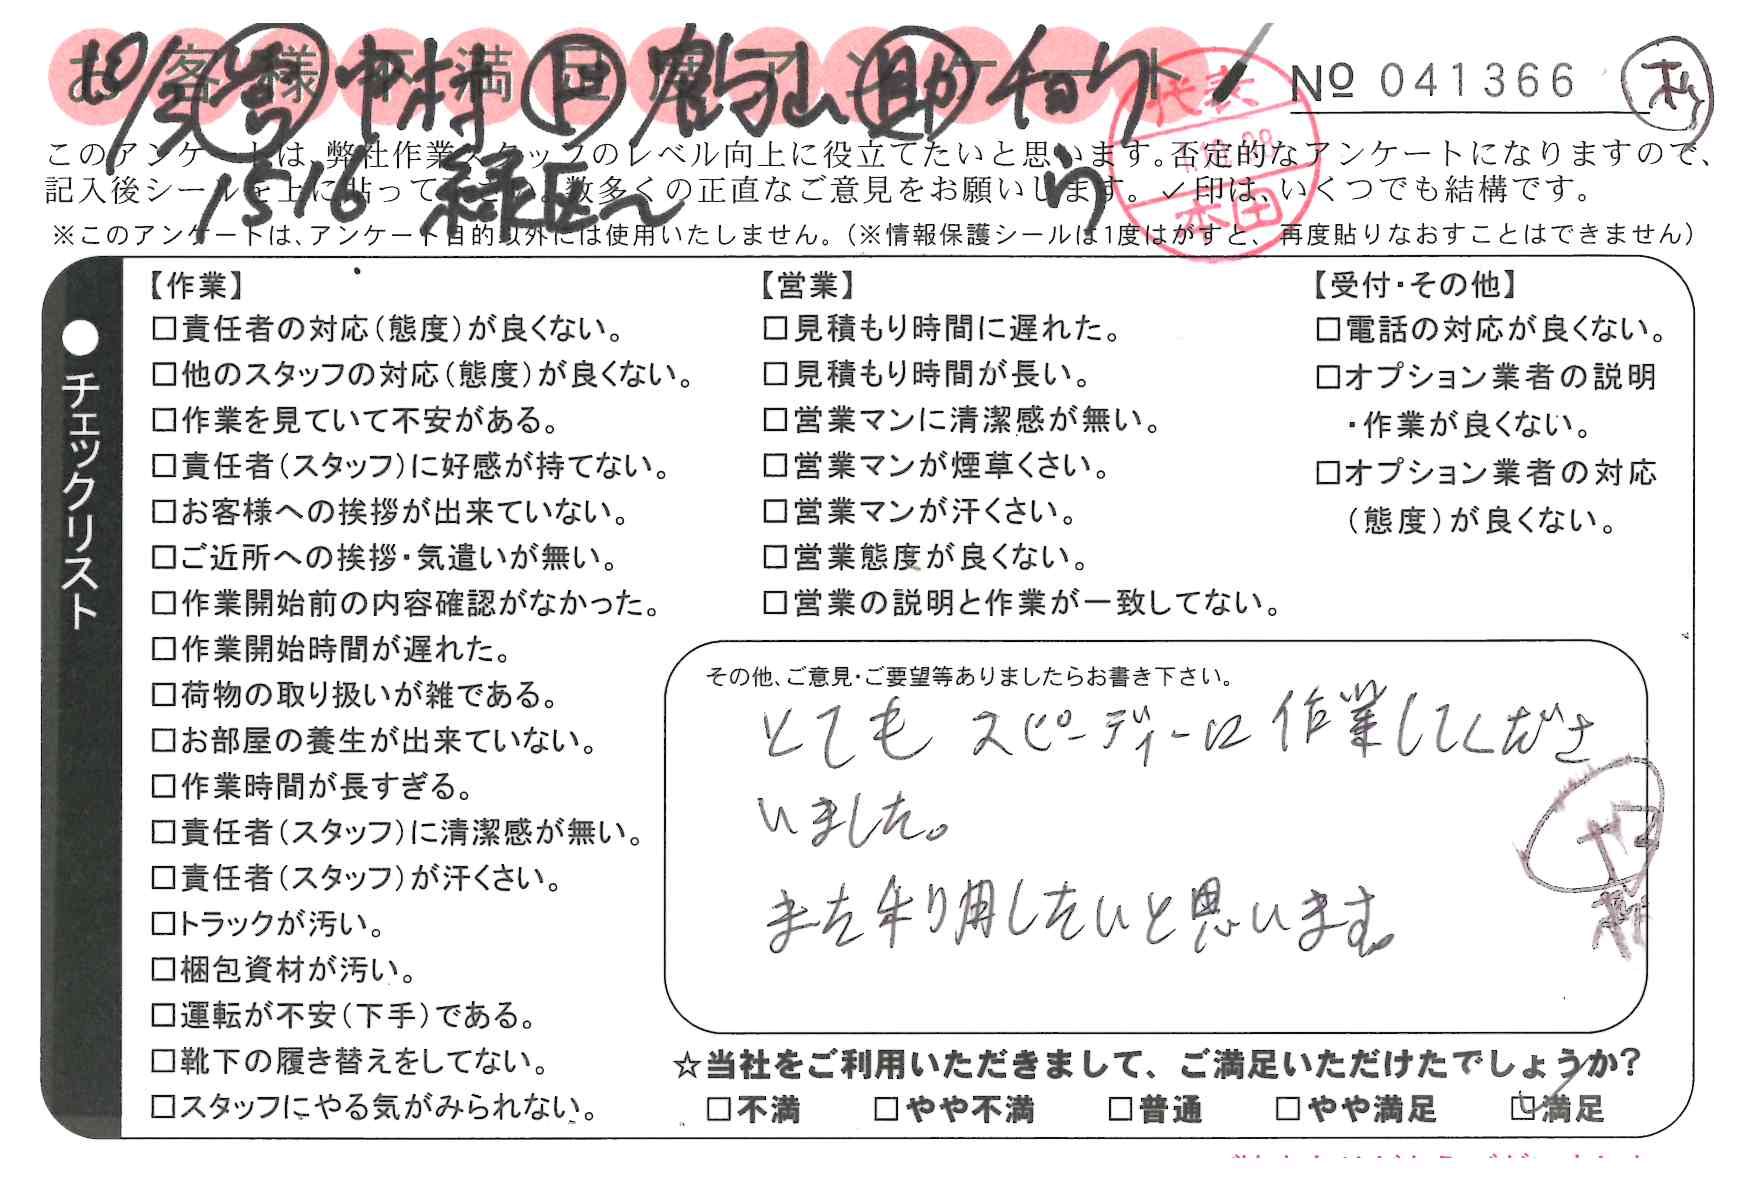 お客様不満足度アンケート
中村
№ 041366
このアンケートは、弊社作業スタッフのレベル向上に役立てたいと思います。否定的なアンケートになりますので、
記入後シールを上に貼って下さい。数多くの正直なご意見をお願いします。✓印は、いくつでも結構です。
1516 緑区へ
代表
本田
※このアンケートは、アンケート目的以外には使用いたしません。(※情報保護シールは1度はがすと、再度貼りなおすことはできません)
●チェックリスト
【作業】
□責任者の対応(態度)が良くない。
□他のスタッフの対応(態度)が良くない。
□作業を見ていて不安がある。
□責任者(スタッフ)に好感が持てない。
□お客様への挨拶が出来ていない。
□ご近所への挨拶・気遣いが無い。
□作業開始前の内容確認がなかった。
□作業開始時間が遅れた。
□荷物の取り扱いが雑である。
□お部屋の養生が出来ていない。
□作業時間が長すぎる。
□責任者(スタッフ)に清潔感が無い。
□責任者(スタッフ)が汗くさい。
□トラックが汚い。
□梱包資材が汚い。
□運転が不安(下手)である。
□靴下の履き替えをしてない。
□スタッフにやる気がみられない。
【営業】
□見積もり時間に遅れた。
□見積もり時間が長い。
□営業マンに清潔感が無い。
□営業マンが煙草くさい。
□営業マンが汗くさい。
□営業態度が良くない。
□営業の説明と作業が一致してない。
【受付・その他】
□電話の対応が良くない。
□オプション業者の説明
・作業が良くない。
□オプション業者の対応
(態度)が良くない。
その他、ご意見・ご要望等ありましたらお書き下さい。
とてもスピーディーに作業してくださ
いました。
また利用したいと思います。
☆当社をご利用いただきまして、ご満足いただけたでしょうか?
□不満 □やや不満 □普通 □やや満足 ☑満足